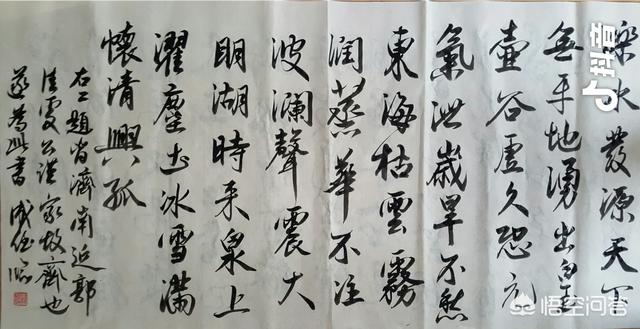 濼水發源天下
無平地湧出白玉
壺谷虛久恐元
氣泄歲旱不愁
東海枯雲霧
潤蒸華不注
波瀾聲震大
明湖時來泉上
濯塵土冰雪滿
懷清興孤
右二題皆濟南近郭
佳處公謹家故齊也
遂為此書 臨
抖音
悟空问答